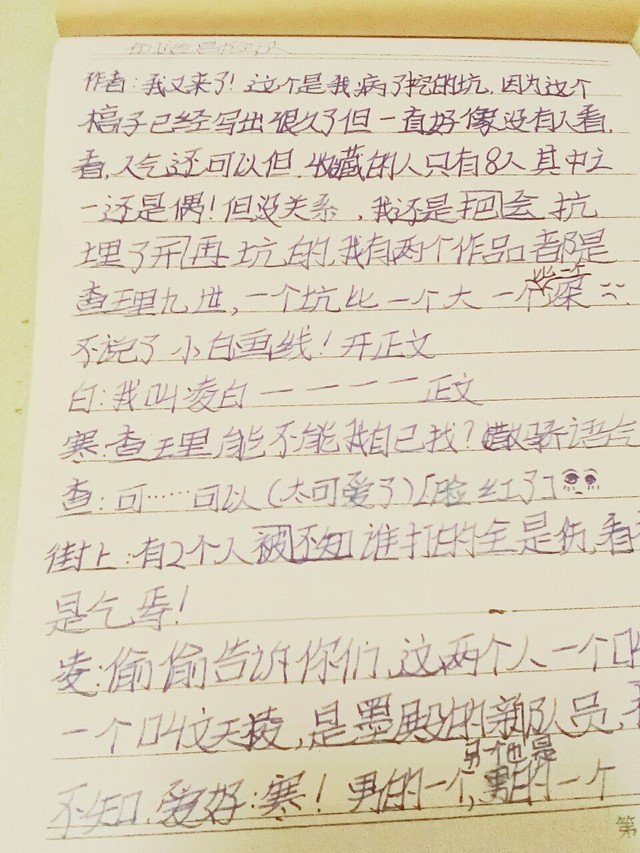 作者:我又来了!这个是我病了挖的坑,因为这个
槁子已经写出很久了但一直好像没有人看,
看,人气还可以但,收藏的人只有8人其中之
一还是偶!但没关系,我还是把会坑
埋了开再坑的,我有两个作品都是
查理九世,一个坑比一个大一个深
不说了小白画线!开正文
白:我叫凌白一一一一正文
寒:查理能不能我自己找?撒骄语气
查:可……可以(太可爱了)「脸红了」
街上:有2个人被不知谁打的全是伤,看
是乞丐!
凌:偷偷告诉你们,这两个人一个叫
一个叫文天凌,是墨殿的新队员,
不知.爱好:寒!男的一个,男的一个
另一个也是
第